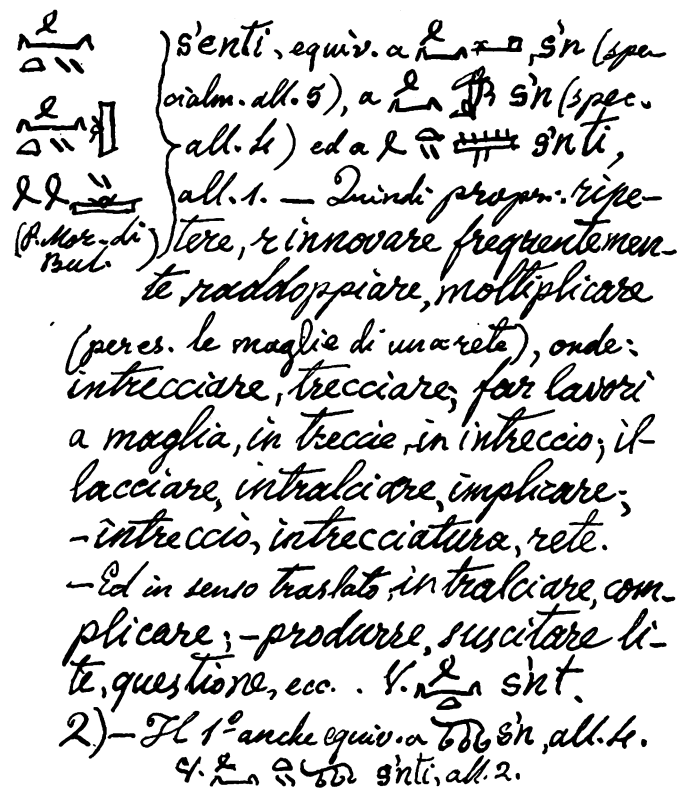 s'enti, equiv. a s'n (spe-
cialm. all. 5), a s'n (spec.
all. 4) ed a s'nti,
all. 1. — Quindi propr.: ripe-
(P. Mor. di Bul.) tere, rinnovare frequentemen-
te, raddoppiare, moltiplicare
(per es. le maglie di una rete), onde:
intrecciare, trecciare; far lavori
a maglia, in treccie, in intreccio; il-
lacciare, intralciare, implicare;
-intreccio, intrecciatura, rete.
-Ed in senso traslato, intralciare, com-
plicare; -produrre, suscitare li-
te, questione, ecc.. V. s'nt.
2)- Il 1º anche equiv. a s'n, all. 4.
V. s'nti, all. 2.